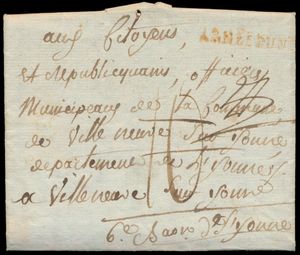 aux Citoyens,
ARMÉE DU N
et Republicquains, officiers
Municipeaux de la Commune
de Ville neuve Sur yonne
departement de L'yonne
a Ville neuve Sur yonne
6e Baon de L'yonne